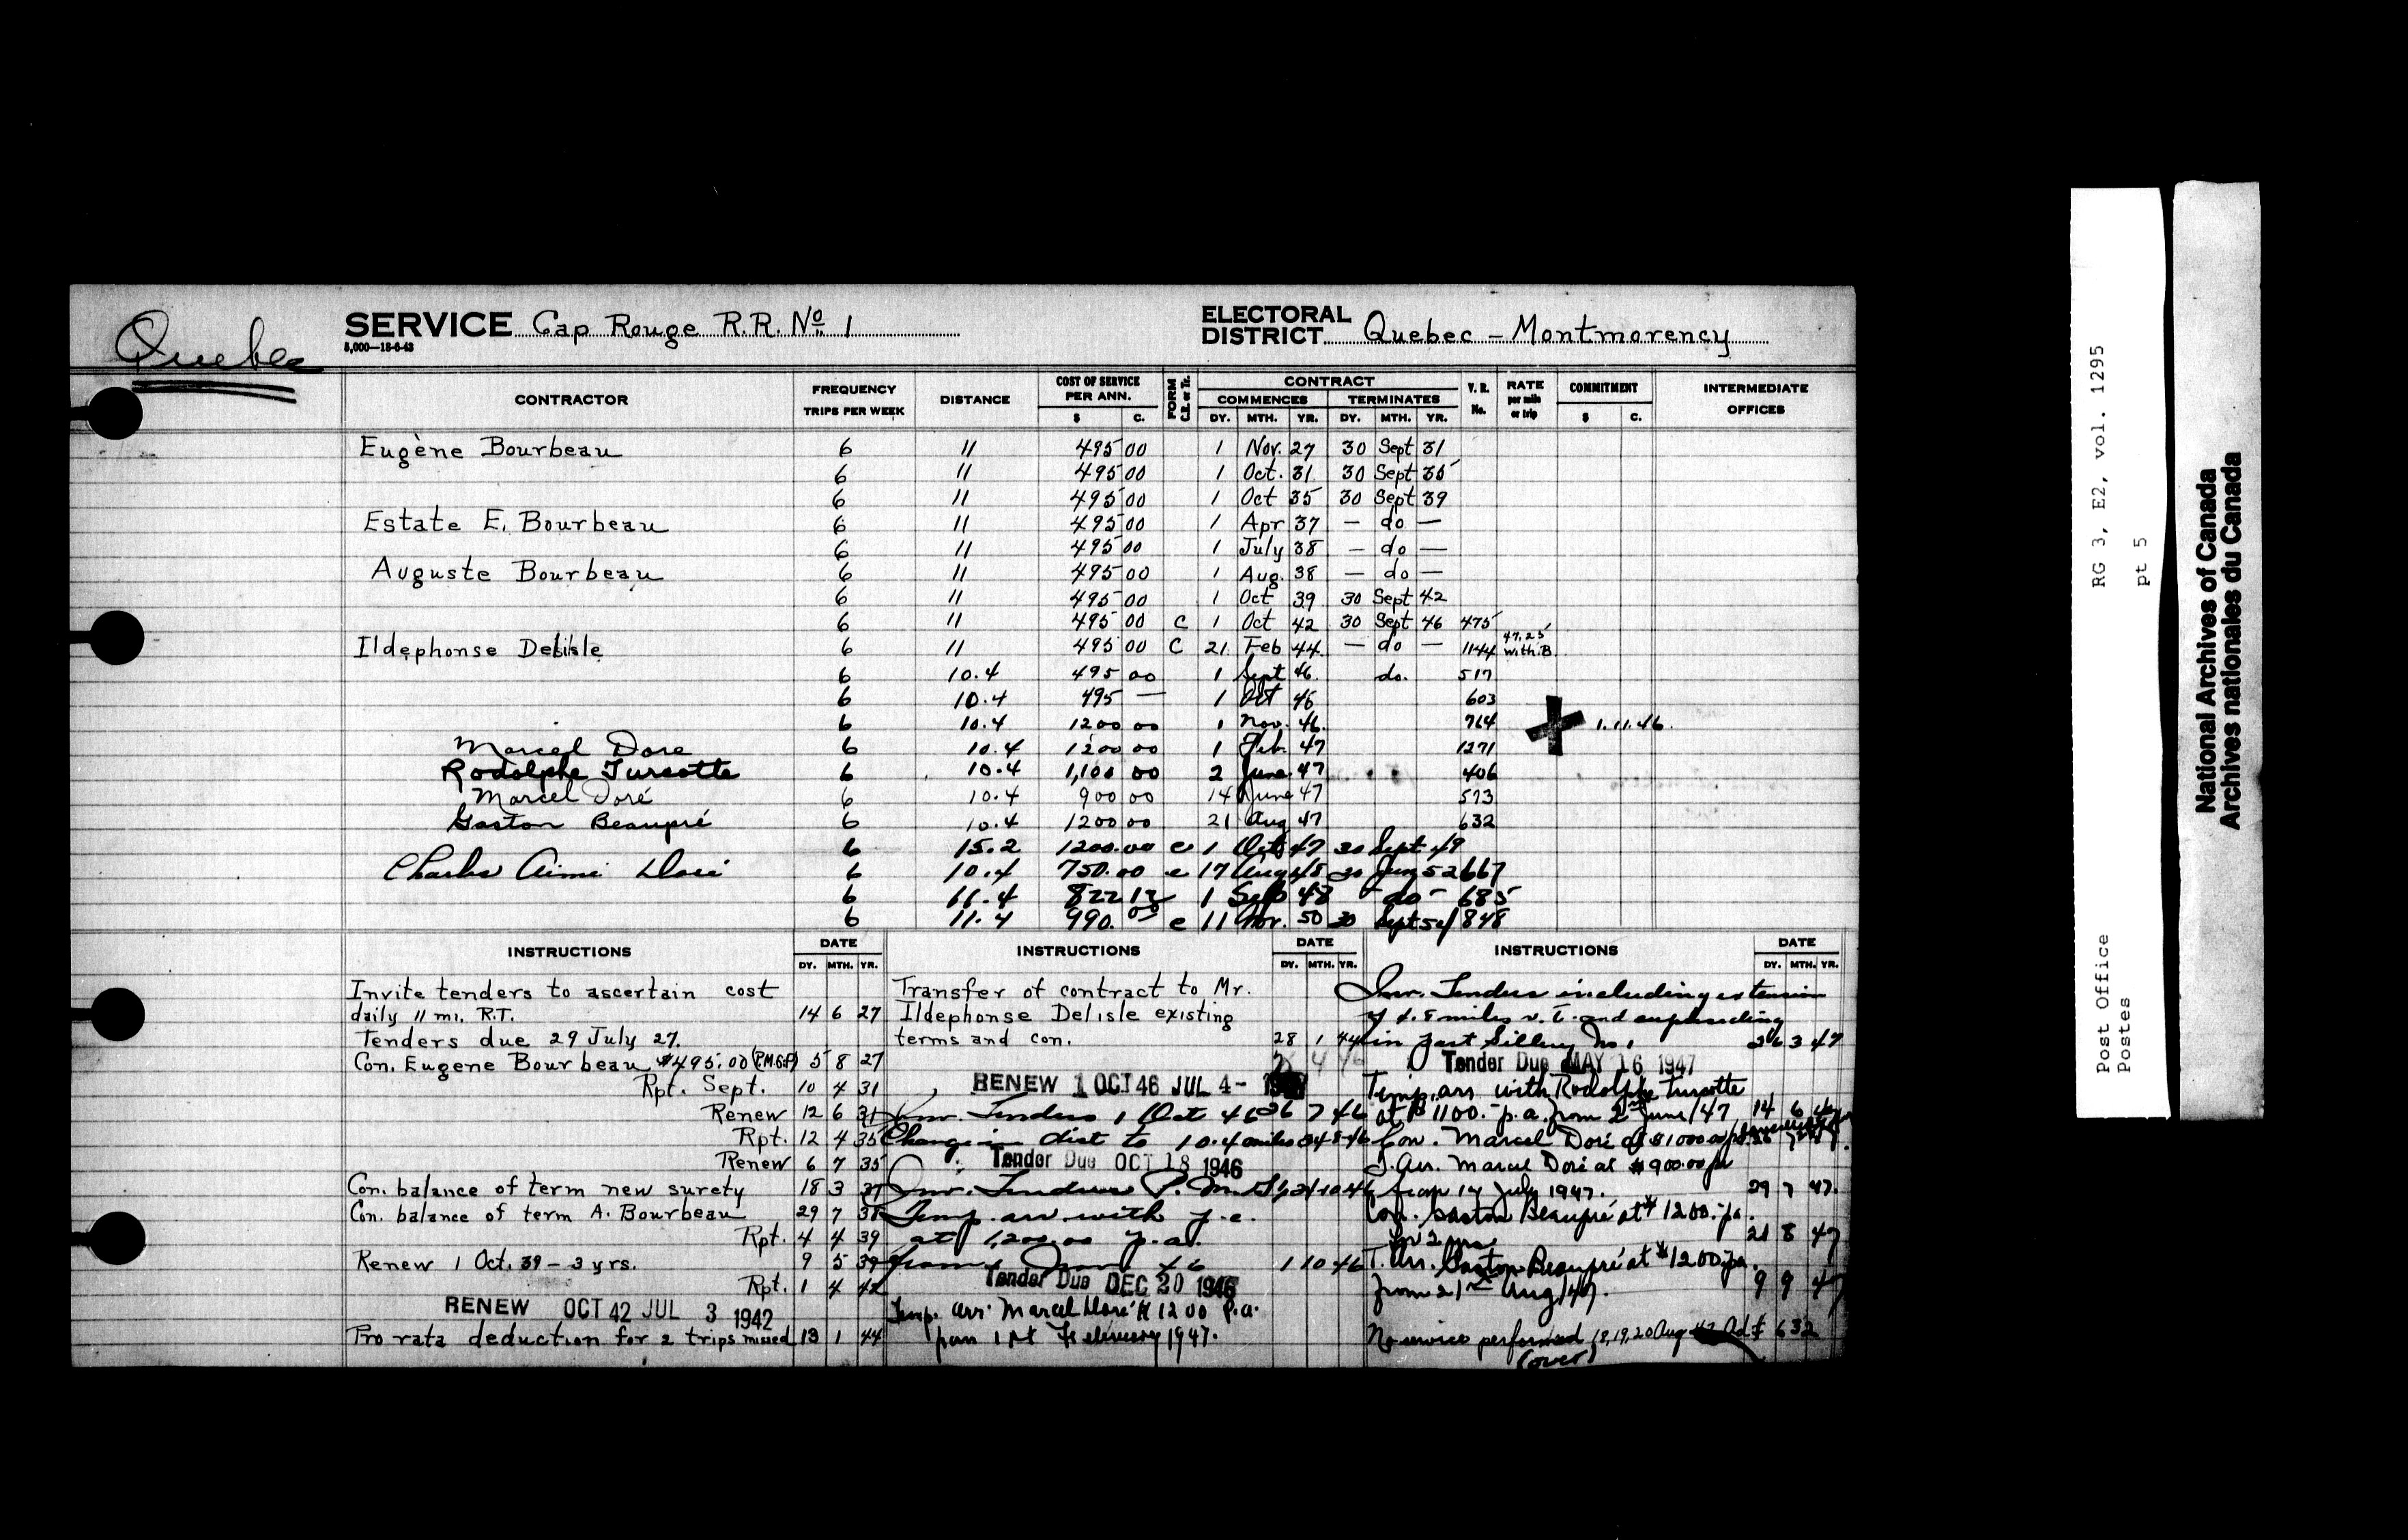 Quebec
SERVICE Cap Rouge R.R. No 1
5,000—18-6-43
ELECTORAL DISTRICT Quebec - Montmorency
CONTRACTOR FREQUENCY TRIPS PER WEEK DISTANCE COST OF SERVICE PER ANN. $ C. FORM C.E. or Tr. CONTRACT COMMENCES DY. MTH. YR. TERMINATES DY. MTH. YR. V. R. No. RATE per mile or trip COMMITMENT $ C. INTERMEDIATE OFFICES
Eugène Bourbeau 6 11 495 00 1 Nov. 27 30 Sept 31
6 11 495 00 1 Oct. 31 30 Sept 35
6 11 495 00 1 Oct 35 30 Sept 39
Estate E. Bourbeau 6 11 495 00 1 Apr 37 — do —
6 11 495 00 1 July 38 — do —
Auguste Bourbeau 6 11 495 00 1 Aug. 38 — do —
6 11 495 00 1 Oct 39 30 Sept 42
6 11 495 00 C 1 Oct 42 30 Sept 46 475
Ildephonse Delisle 6 11 495 00 C 21 Feb 44 — do — 1144 47.25 with B.
6 10.4 495 00 1 Sept 46. do. 517
6 10.4 495 — 1 Oct 46 603
6 10.4 1200 00 1 Nov. 46. 764 1.11.46.
Marcel Dore 6 10.4 1200 00 1 Feb. 47 1271
Rodolphe Turcotte 6 10.4 1,100 00 2 June 47 406
Marcel Doré 6 10.4 900 00 14 June 47 573
Gaston Beaupré 6 10.4 1200 00 21 Aug 47 632
6 15.2 1200.00 c 1 Oct 47 30 Sept 49
Charles Aimé Doré 6 10.4 750.00 c 17 Aug 48 30 Jun 52 667
6 11.4 822 12 1 Sep 48 - do - 685
6 11.4 990.00 c 11 Nov. 50 30 Sept 848
INSTRUCTIONS DATE DY. MTH. YR.
Invite tenders to ascertain cost
daily 11 mi. R.T. 14 6 27
Tenders due 29 July 27.
Con. Eugene Bourbeau $495.00 (P.M.G.F) 5 8 27
Rpt. Sept. 10 4 31
Renew 12 6 31
Rpt. 12 4 35
Renew 6 7 35
Con. balance of term new surety 18 3 37
Con. balance of term A. Bourbeau 29 7 38
Rpt. 4 4 39
Renew 1 Oct. 39 - 3 yrs. 9 5 39
Rpt. 1 4 42
RENEW OCT 42 JUL 3 1942
Pro rata deduction for 2 trips missed 13 1 44
INSTRUCTIONS DATE DY. MTH. YR.
Transfer of contract to Mr.
Ildephonse Delisle existing
terms and con. 28 1 44
RENEW 1 OCT 46 JUL 4-
Inv. Tenders 1 Oct 46 26 7 46
Change in dist to 10.4 miles 24 8 46
Tender Due OCT 18 1946
Inv. Tenders
Temp. arr with p.c.
at 1,200.00 p.a.
from 1 46 1 10 46
Tender Due DEC 20 1946
Temp. Arr. Marcel Doré @ 1200 P.a.
from 1st February 1947.
INSTRUCTIONS DATE DY. MTH. YR.
Inv. Tenders including extension
of miles and superseding
Sillery No. 1 26 3 47
Tender Due MAY 16 1947
Temp. arr. with Rodolphe Turcotte
at $1100.- p.a. from 2nd June/47 14 6 47
Con. Marcel Doré at $1000.00
T. Arr. Marcel Doré at $900.00 pa
from 14 July 1947. 29 7 47.
Con. Gaston Beaupré at $1200.- pa.
for 2 yrs 21 8 47
T. Arr. Gaston Beaupré at $1200 pa.
from 21st Aug/47. 9 9 47
No service performed 18,19,20 Aug 632
(over)
RG 3, E2, vol. 1295
pt 5
Post Office
Postes
National Archives of Canada
Archives nationales du Canada